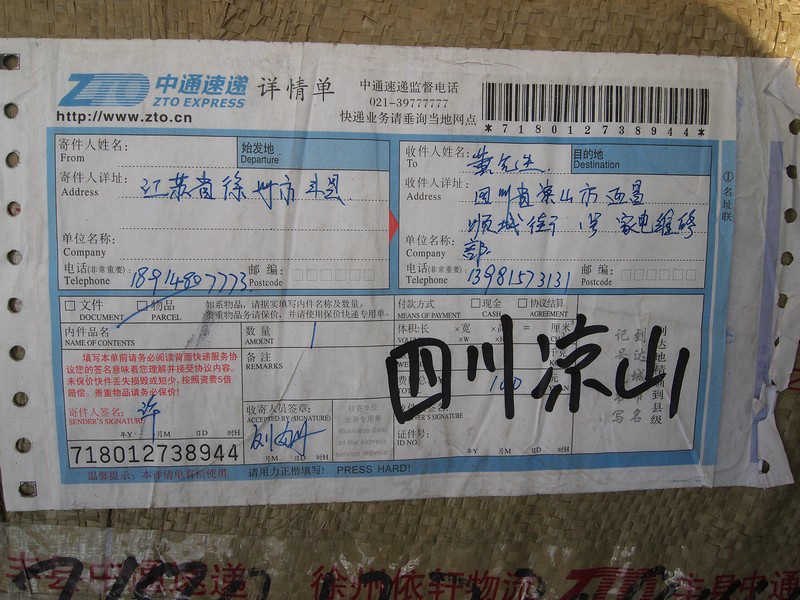 ZTO 中通速递 详情单
ZTO EXPRESS
http://www.zto.cn
中通速递监督电话
021-39777777
快递业务请垂询当地网点
*718012738944*
寄件人姓名:
From
始发地
Departure
寄件人详址: 江苏省徐州市丰县
Address
单位名称:
Company
电话(非常重要): 18914807773 邮 编:
Telephone Postcode
收件人姓名: 黄先生
To
目的地
Destination
收件人详址: 四川省凉山市西昌
Address
顺城街 1号 家电维修
部
单位名称:
Company
电话(非常重要): 13981573131 邮 编:
Telephone Postcode
①名址联
□ 文件 □ 物品
DOCUMENT PARCEL
如系物品,请据实单写内件名称及数量,
贵重物品请务必保价,并请使用保价快递专用单。
内件品名
NAME OF CONTENTS
数量 1
AMOUNT
填写本单前请务必阅读背面快递服务协
议您的签名意味着您理解并接受协议内容。
未保价快件丢失损毁或短少,按照资费5倍
赔偿。贵重物品请务必保价!
备 注
REMARKS
寄件人签名: 许
SENDER'S SIGNATURE
年Y 月M 日D 时H
收寄人员签章:
ACCEPTED BY (SIGNATURE)
月M 日D 时H
付款方式 □ 现金 □ 协议结算
MEANS OF PAYMENT CASH AGREEMENT
体积:长 ×宽 ×高 = 厘米
四川凉山
100
证件号:
ID NO.
年Y 月M 日D 时H
到达地精确到县级
到达城市
记号 填写名
718012738944
温馨提示:本详情单有偿使用
请用力正楷填写! PRESS HARD!
丰县中通速递 徐州依轩物流 ZTO 丰县中通